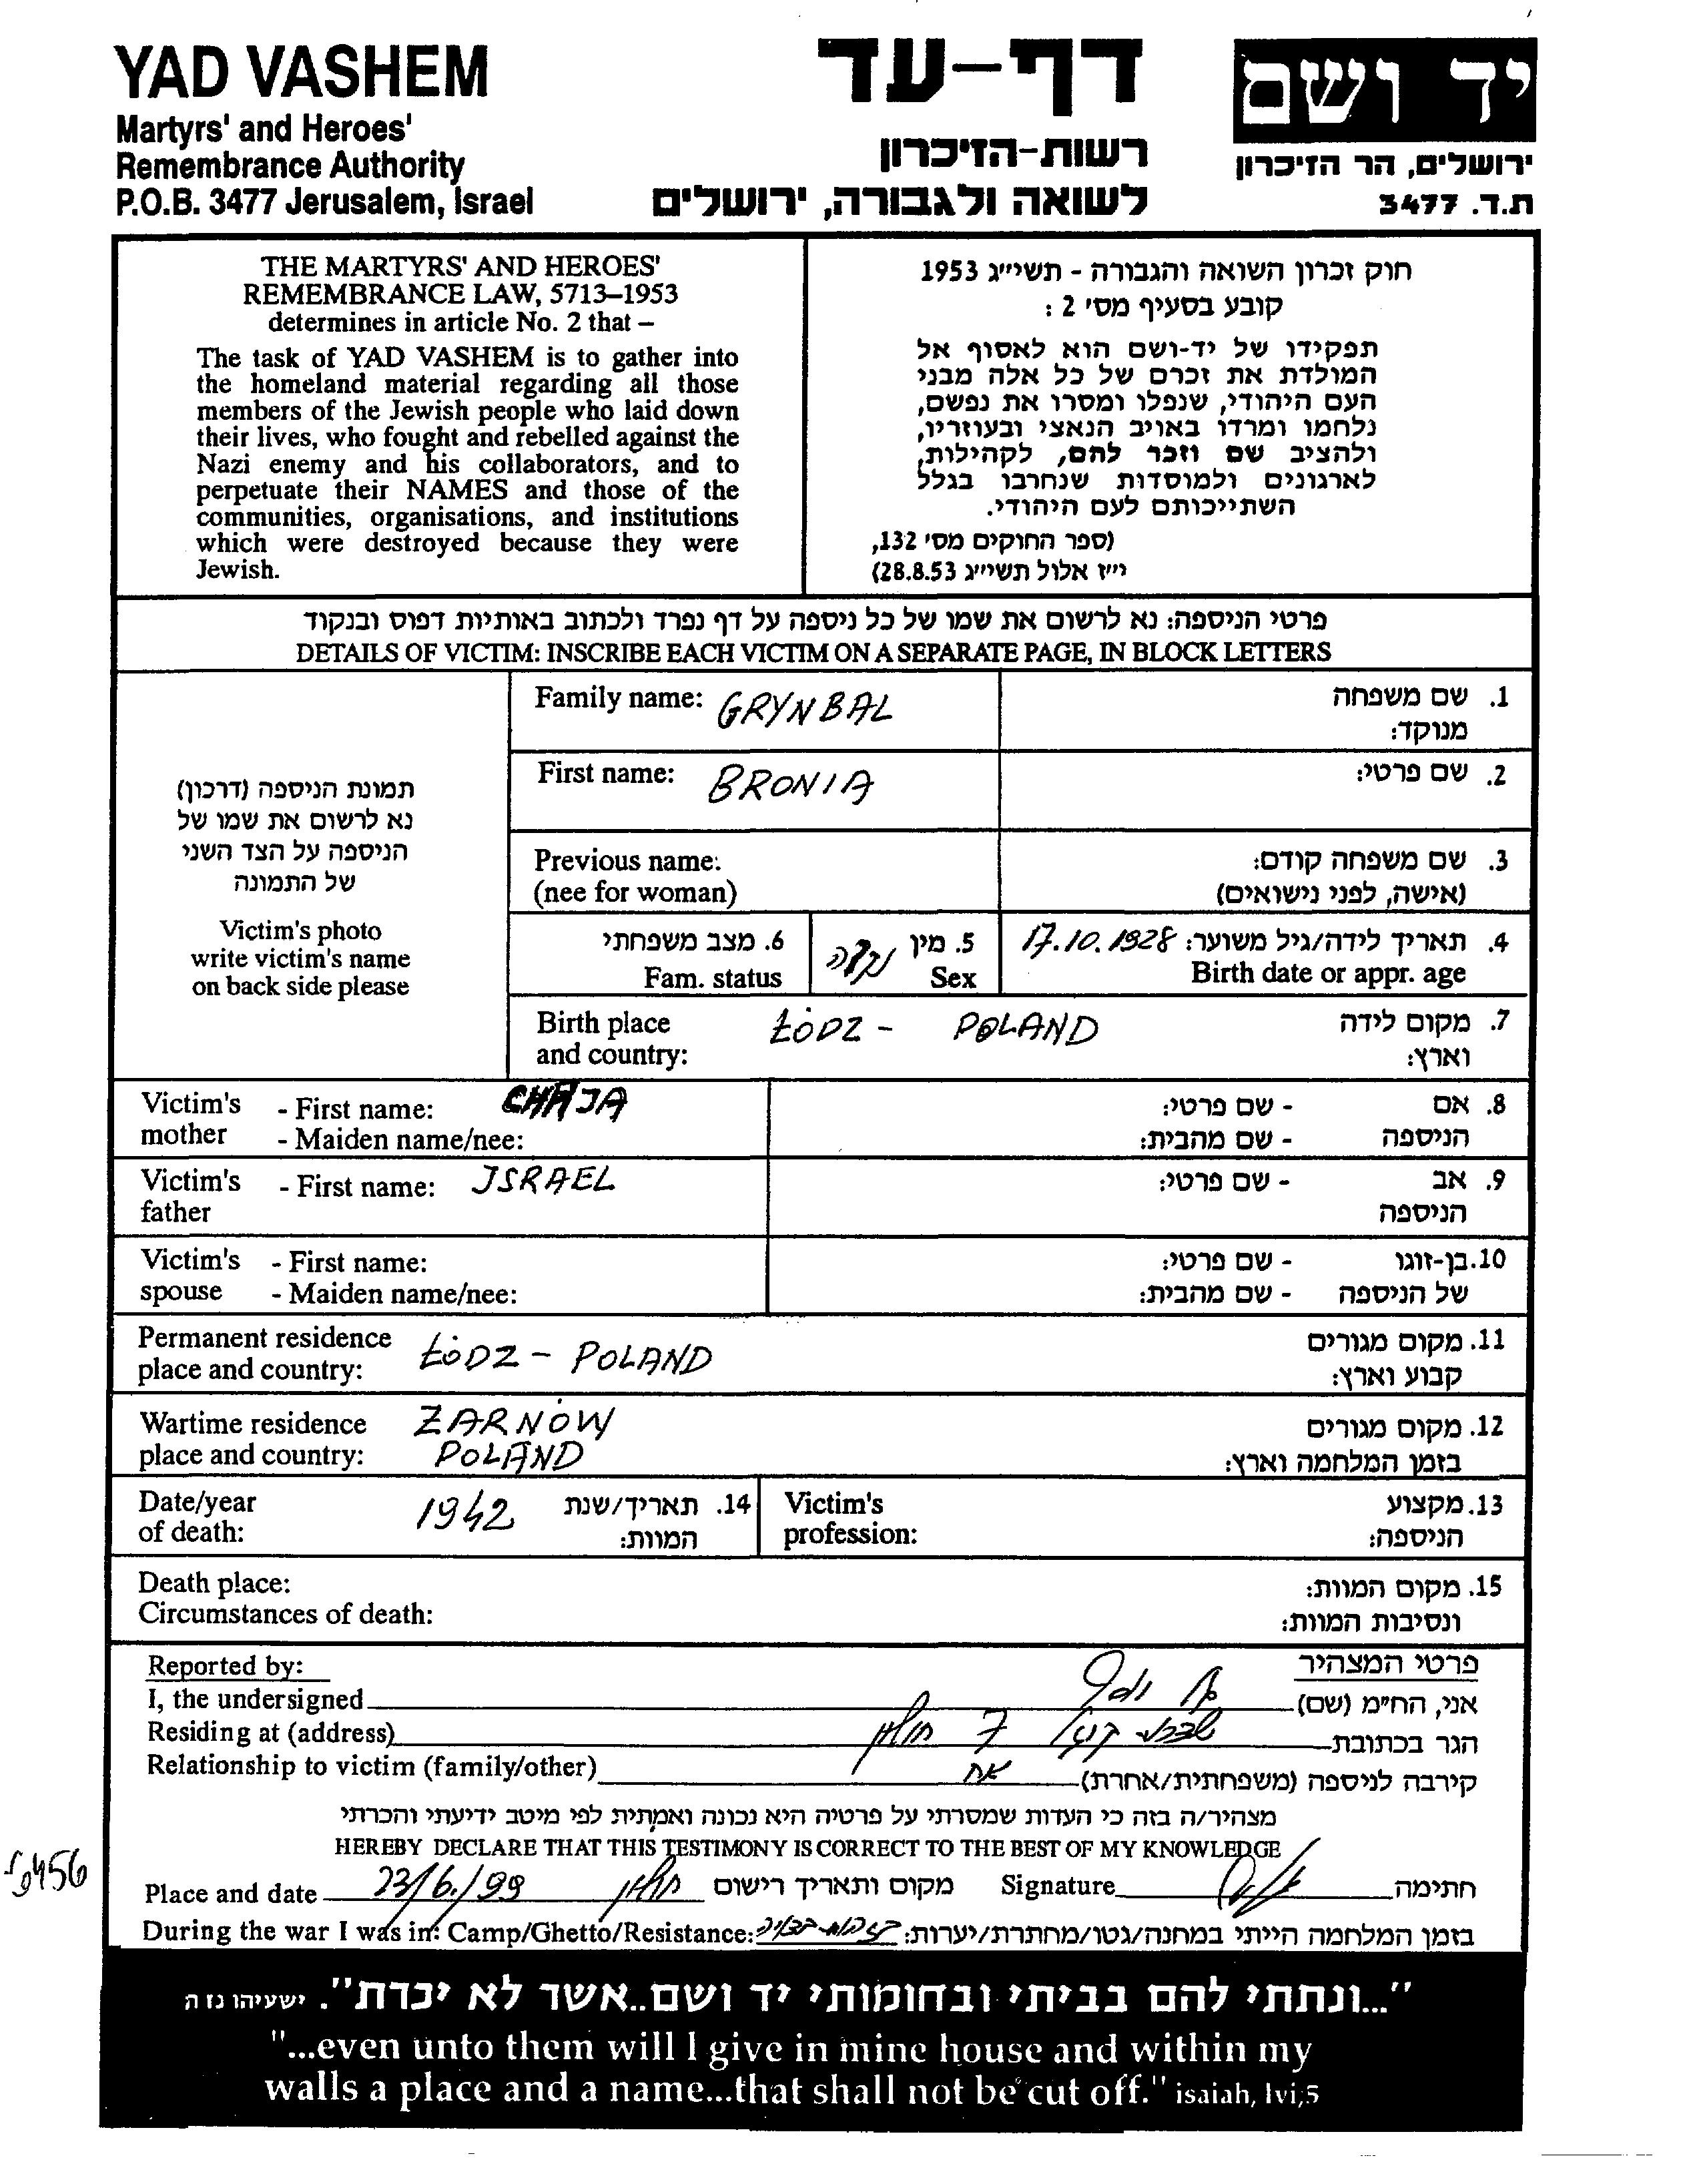 YAD VASHEM
Martyrs' and Heroes'
Remembrance Authority
P.O.B. 3477 Jerusalem, Israel
דף-עד
רשות-הזיכרון
לשואה ולגבורה, ירושלים
יד ושם
ירושלים, הר הזיכרון
ת.ד. 3477
THE MARTYRS' AND HEROES'
REMEMBRANCE LAW, 5713–1953
determines in article No. 2 that –
The task of YAD VASHEM is to gather into
the homeland material regarding all those
members of the Jewish people who laid down
their lives, who fought and rebelled against the
Nazi enemy and his collaborators, and to
perpetuate their NAMES and those of the
communities, organisations, and institutions
which were destroyed because they were
Jewish.
חוק זכרון השואה והגבורה - תשי״ג 1953
קובע בסעיף מס' 2 :
תפקידו של יד-ושם הוא לאסוף אל
המולדת את זכרם של כל אלה מבני
העם היהודי, שנפלו ומסרו את נפשם,
נלחמו ומרדו באויב הנאצי ובעוזריו,
ולהציב שם וזכר להם, לקהילות,
לארגונים ולמוסדות שנחרבו בגלל
השתייכותם לעם היהודי.
(ספר החוקים מס' 132,
י״ז אלול תשי״ג 28.8.53)
פרטי הניספה: נא לרשום את שמו של כל ניספה על דף נפרד ולכתוב באותיות דפוס ובנקוד
DETAILS OF VICTIM: INSCRIBE EACH VICTIM ON A SEPARATE PAGE, IN BLOCK LETTERS
תמונת הניספה (דרכון)
נא לרשום את שמו של
הניספה על הצד השני
של התמונה
Victim's photo
write victim's name
on back side please
Family name: GRYNBAL
1. שם משפחה
מנוקד:
First name: BRONIA
2. שם פרטי:
Previous name:
(nee for woman)
3. שם משפחה קודם:
(אישה, לפני נישואים)
4. תאריך לידה/גיל משוער: 17.10.1928
Birth date or appr. age
5. מין נקבה
Sex
6. מצב משפחתי
Fam. status
Birth place ŁÓDZ - POLAND
and country:
7. מקום לידה
וארץ:
Victim's - First name: CHAJA
mother - Maiden name/nee:
8. אם - שם פרטי:
הניספה - שם מהבית:
Victim's - First name: ISRAEL
father
9. אב - שם פרטי:
הניספה
Victim's - First name:
spouse - Maiden name/nee:
10. בן-זוגו - שם פרטי:
של הניספה - שם מהבית:
Permanent residence ŁÓDZ - POLAND
place and country:
11. מקום מגורים
קבוע וארץ:
Wartime residence ŻARNÓW
place and country: POLAND
12. מקום מגורים
בזמן המלחמה וארץ:
Date/year 1942
of death:
14. תאריך/שנת
המוות:
Victim's
profession:
13. מקצוע
הניספה:
Death place:
Circumstances of death:
15. מקום המוות:
ונסיבות המוות:
Reported by:
פרטי המצהיר
I, the undersigned
אני, הח״מ (שם)
Residing at (address) 7 חולון
הגר בכתובת
Relationship to victim (family/other) אח
קירבה לניספה (משפחתית/אחרת)
מצהיר/ה בזה כי העדות שמסרתי על פרטיה היא נכונה ואמתית לפי מיטב ידיעתי והכרתי
HEREBY DECLARE THAT THIS TESTIMONY IS CORRECT TO THE BEST OF MY KNOWLEDGE
Place and date 23/6/99 חולון מקום ותאריך רישום
Signature חתימה
During the war I was in: Camp/Ghetto/Resistance:
בזמן המלחמה הייתי במחנה/גטו/מחתרת/יערות:
"...ונתתי להם בביתי ובחומותי יד ושם..אשר לא יכרת". ישעיהו נז ה
"...even unto them will I give in mine house and within my
walls a place and a name...that shall not be cut off." isaiah, lvi,5